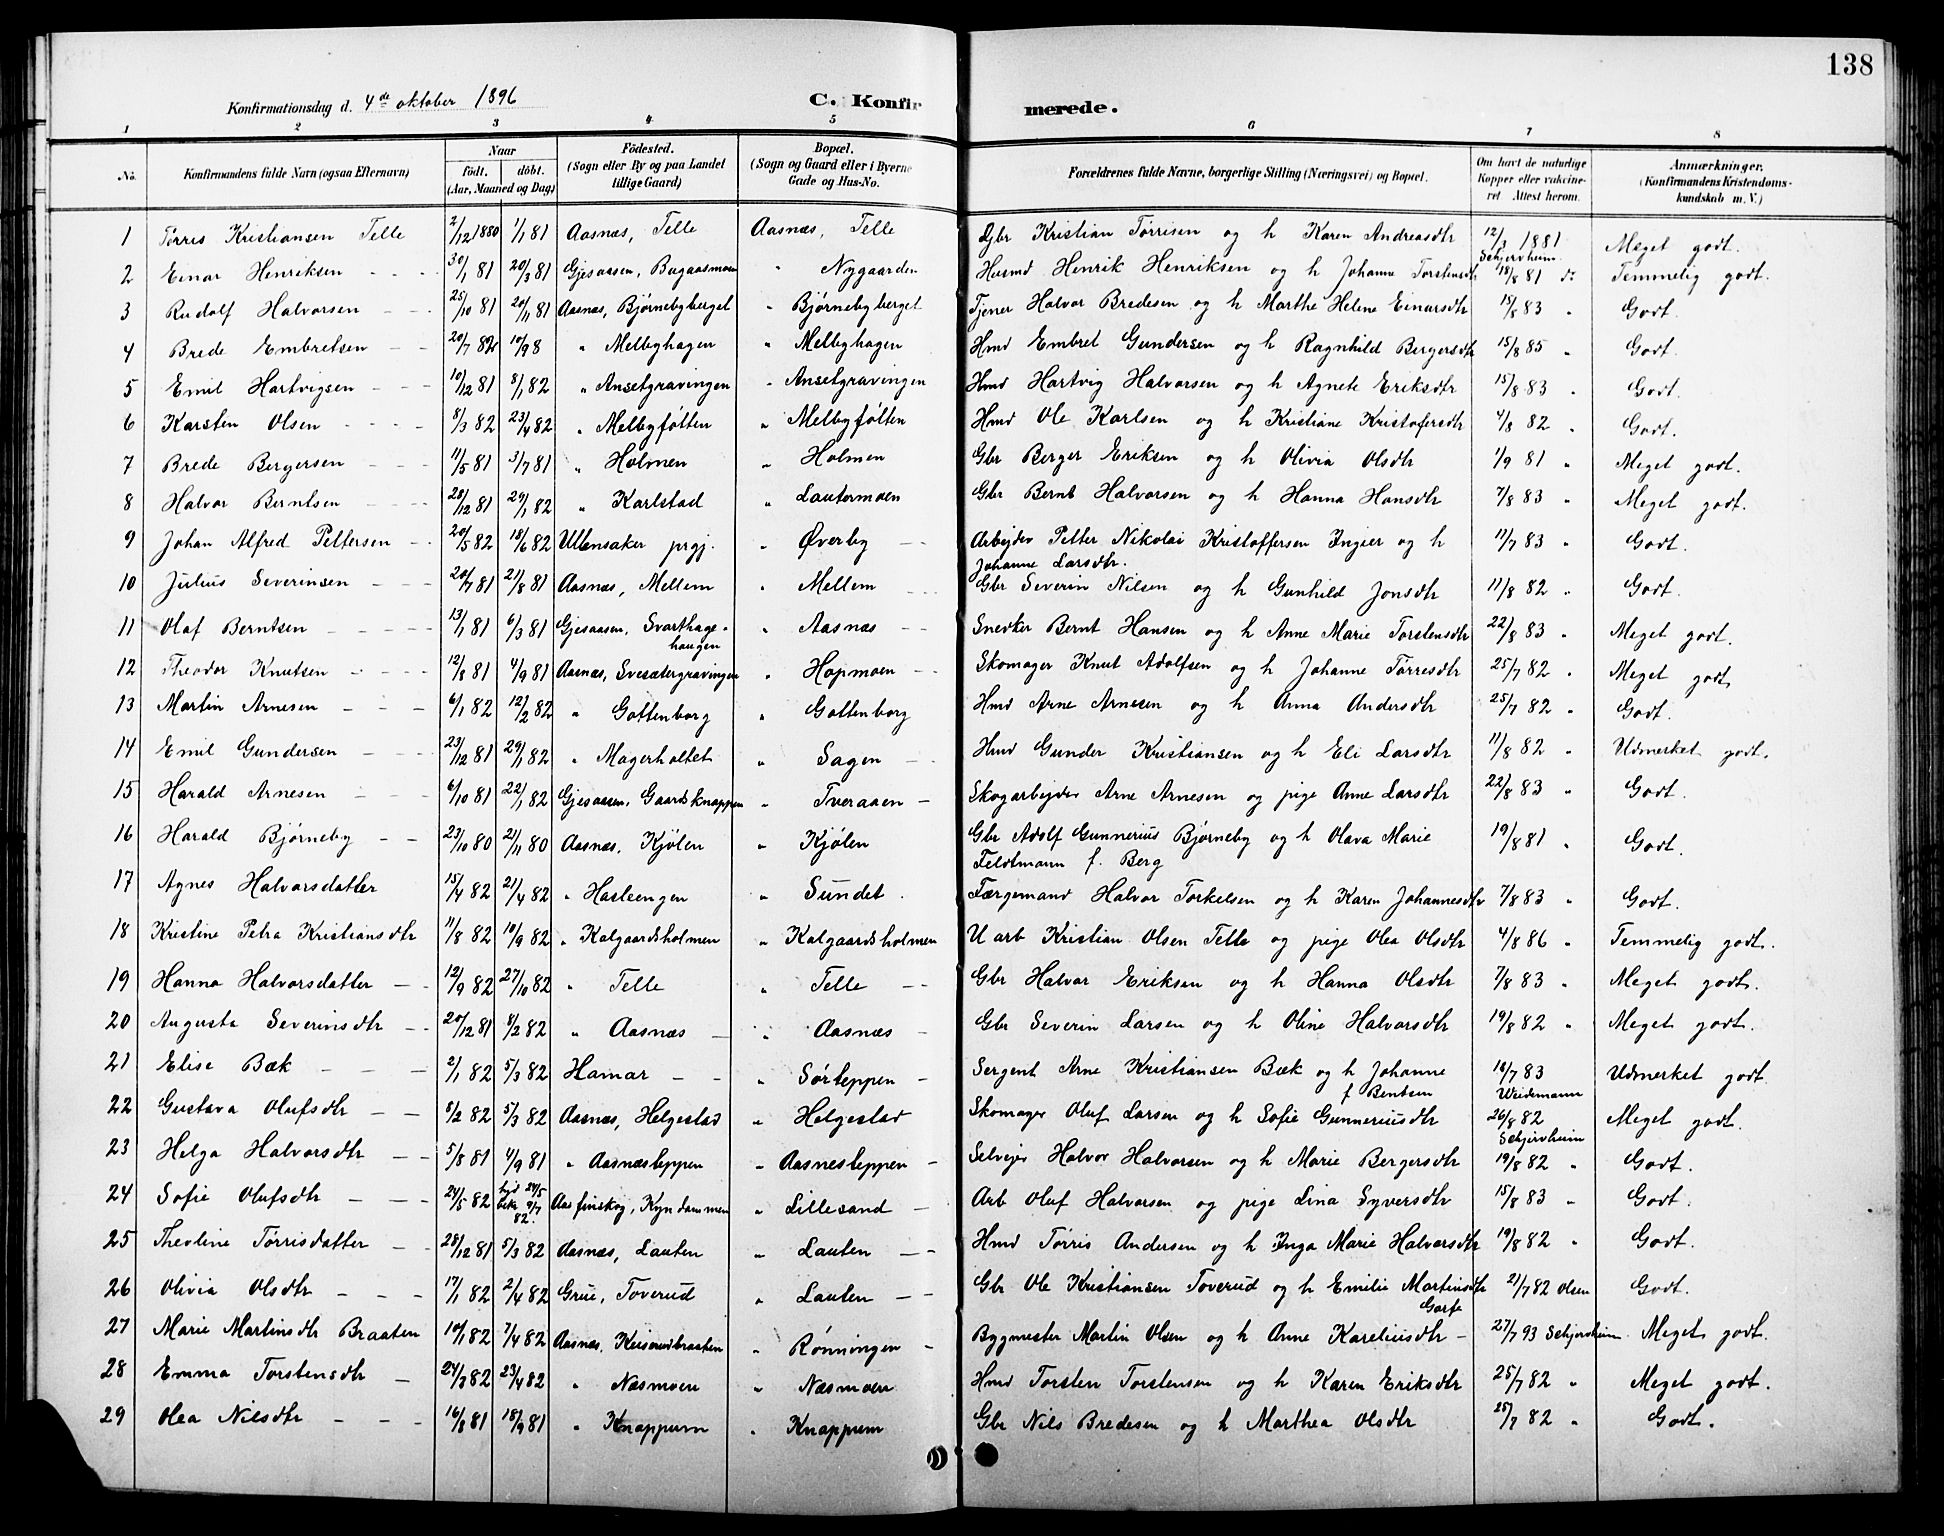 138
Konfirmationsdag d. 4de oktober 1896 C. Konfirmerede.
1 2 3 4 5 6 7 8
No. Konfirmandens fulde Navn (ogsaa Efternavn) Naar født. døbt. (Aar, Maaned og Dag) Födested. (Sogn eller By og paa Landet tillige Gaard) Bopæl. (Sogn og Gaard eller i Byerne Gade og Hus-No. Forældrenes fulde Navne, borgerlige Stilling (Næringsvei) og Bopæl. Om havt de naturlige Kopper eller vakcineret Attest herom. Anmærkninger. (Konfirmandens Kristendomskundskab m. V.)
1 Tørris Kristiansen Telle 2/12 1880 1/1 81 Aasnæs, Telle Aasnæs, Telle Gbr Kristian Tørrisen og h Karen Andreasdtr 12/3 1881 Schjervheim Meget godt.
2 Einar Henriksen 30/1 81 20/3 81 Gjesaasen, Bugaasmoen " Nygaarden Husmd Henrik Henriksen og h Johanne Torstensdtr 18/8 81 do Temmelig godt.
3 Rudolf Halvorsen 25/10 81 20/11 81 Aasnæs, Bjørnebyberget " Bjørnebyberget Tjener Halvor Bredesen og h Marthe Helene Einarsdtr 15/8 83 " Godt.
4 Brede Embretsen 20/7 82 10/9 8 " Melbyhagen " Melbyhagen Hmd Embret Gundersen og h Ragnhild Bergersdtr 15/8 85 " Godt.
5 Emil Hartvigsen 10/12 81 8/1 82 " Ansetgravingen " Ansetgravingen Hmd Hartvig Halvorsen og h Agnete Eriksdtr 15/8 83 " Godt.
6 Karsten Olsen 8/3 82 23/4 82 " Melbyføtten " Melbyføtten Hmd Ole Karlsen og h Kristiane Kristofersdtr 4/8 82 " Godt.
7 Brede Bergersen 11/5 81 3/7 81 " Holmen " Holmen Gbr Berger Eriksen og h Olivia Olsdtr 1/9 81 " Meget godt.
8 Halvor Berntsen 28/12 81 29/1 82 " Karlstad " Lautermoen Gbr Bernt Halvorsen og h Hanna Hansdtr 7/8 83 " Meget godt.
9 Johan Alfred Pettersen 20/5 82 18/6 82 Ullensaker prgj. " Øverby Arbejder Petter Nikolai Kristoffersen Ingier og h 11/7 83 " Godt.
Johanne Larsdtr.
10 Julius Severinsen 20/7 81 21/8 81 Aasnæs, Mellem " Mellem Gbr Severin Nilsen og h Gunhild Jonsdtr 11/8 82 " Godt.
11 Olaf Berntsen 13/1 81 6/3 81 Gjesaasen, Svarthagehaugen " Aasnæs Snedker Bernt Hansen og h Anne Marie Torstensdtr 22/8 83 " Meget godt.
12 Theodor Knutsen 12/8 81 4/9 81 Aasnæs, Svesætergravingen " Hopmoen Skomager Knut Adolfsen og h Johanne Tørresdtr 25/7 82 " Meget godt
13 Martin Arnesen 6/1 82 12/2 82 " Gottenborg " Gottenborg Hmd Arne Arnesen og h Anna Andersdtr 25/7 82 " Godt.
14 Emil Gundersen 23/12 81 29/1 82 " Magerholtet " Sagen Hmd Gunder Kristiansen og h Eli Larsdtr 11/8 82 " Udmerket godt.
15 Harald Arnesen 6/10 81 22/1 82 Gjesaasen, Gaardsknappen " Tveraaen Skogarbejder Arne Arnesen og pige Anne Larsdtr 22/8 83 " Godt.
16 Harald Bjørneby 23/10 80 21/11 80 Aasnæs, Kjølen " Kjølen Gbr Adolf Gunnerius Bjørneby og h Olava Marie 19/8 81 " Godt.
Feldtmann f. Berg
17 Agnes Halvorsdatter 15/4 82 21/4 82 " Hasleengen " Sundet Færgemand Halvor Torkelsen og h Karen Johannesdtr 7/8 83 " Godt.
18 Kristine Petra Kristiansdtr 11/8 82 10/9 82 " Kalgaardsholmen " Kalgaardsholmen U arb Kristian Olsen Telle og pige Olea Olsdtr 4/8 86 " Temmelig godt.
19 Hanna Halvorsdatter 12/9 82 27/10 82 " Telle " Telle Gbr Halvor Eriksen og h Hanna Olsdtr 7/8 83 " Meget godt.
20 Augusta Severinsdtr 20/12 81 4/2 82 " Aasnæs " Aasnæs Gbr Severin Larsen og h Oline Halvorsdtr 19/8 82 " Meget godt.
21 Elise Bæk 2/1 82 5/3 82 Hamar " Sørteppen Sergent Arne Kristiansen Bæk og h Johanne f Bentsen 16/7 83 Weidemann Udmerket godt
22 Gustava Olufsdtr 5/2 82 5/3 82 Aasnæs, Helgestad " Helgestad Skomager Oluf Larsen og h Sofie Gunneriusdtr 26/8 82 Schjervheim Meget godt.
23 Helga Halvorsdtr 5/8 81 4/9 81 " Aasnæsteppen " Aasnesteppen Selvejer Halvor Halvorsen og h Marie Bergersdtr 19/8 82 " Godt.
24 Sofie Olufsdtr 24/5 82 hjd 24/5 bekr 9/7 82. Aas finskog, Kyndammen " Lillesand Arb Oluf Halvorsen og pige Lina Syversdtr 15/8 83 " Godt.
25 Theoline Tørrisdatter 28/12 81 5/3 82 Aasnæs, Lauten " Lauten Hmd Tørris Andersen og h Inga Marie Halvorsdtr 19/8 82 " Godt.
26 Olivia Olsdtr 17/1 82 2/4 82 Grue, Toverud " Lauten Gbr Ole Kristiansen Toverud og h Emilie Martinsdtr 21/7 82 Olsen Godt.
27 Marie Martinsdtr Braaten 10/1 82 7/4 82 Aasnæs, Keiserudbraaten " Rønningen Bygmester Martin Olsen og h Anne Kareliusdtr 27/7 93 Schjervheim Meget godt.
28 Emma Torstensdtr 24/3 82 23/4 82 " Næsmoen " Næsmoen Hmd Torsten Torstensen og h Karen Eriksdtr 25/7 82 " Meget godt.
29 Olea Nilsdtr 16/8 81 18/9 81 " Knappum " Knappum Gbr Nils Bredesen og h Marthea Olsdtr 25/7 82 " Godt.